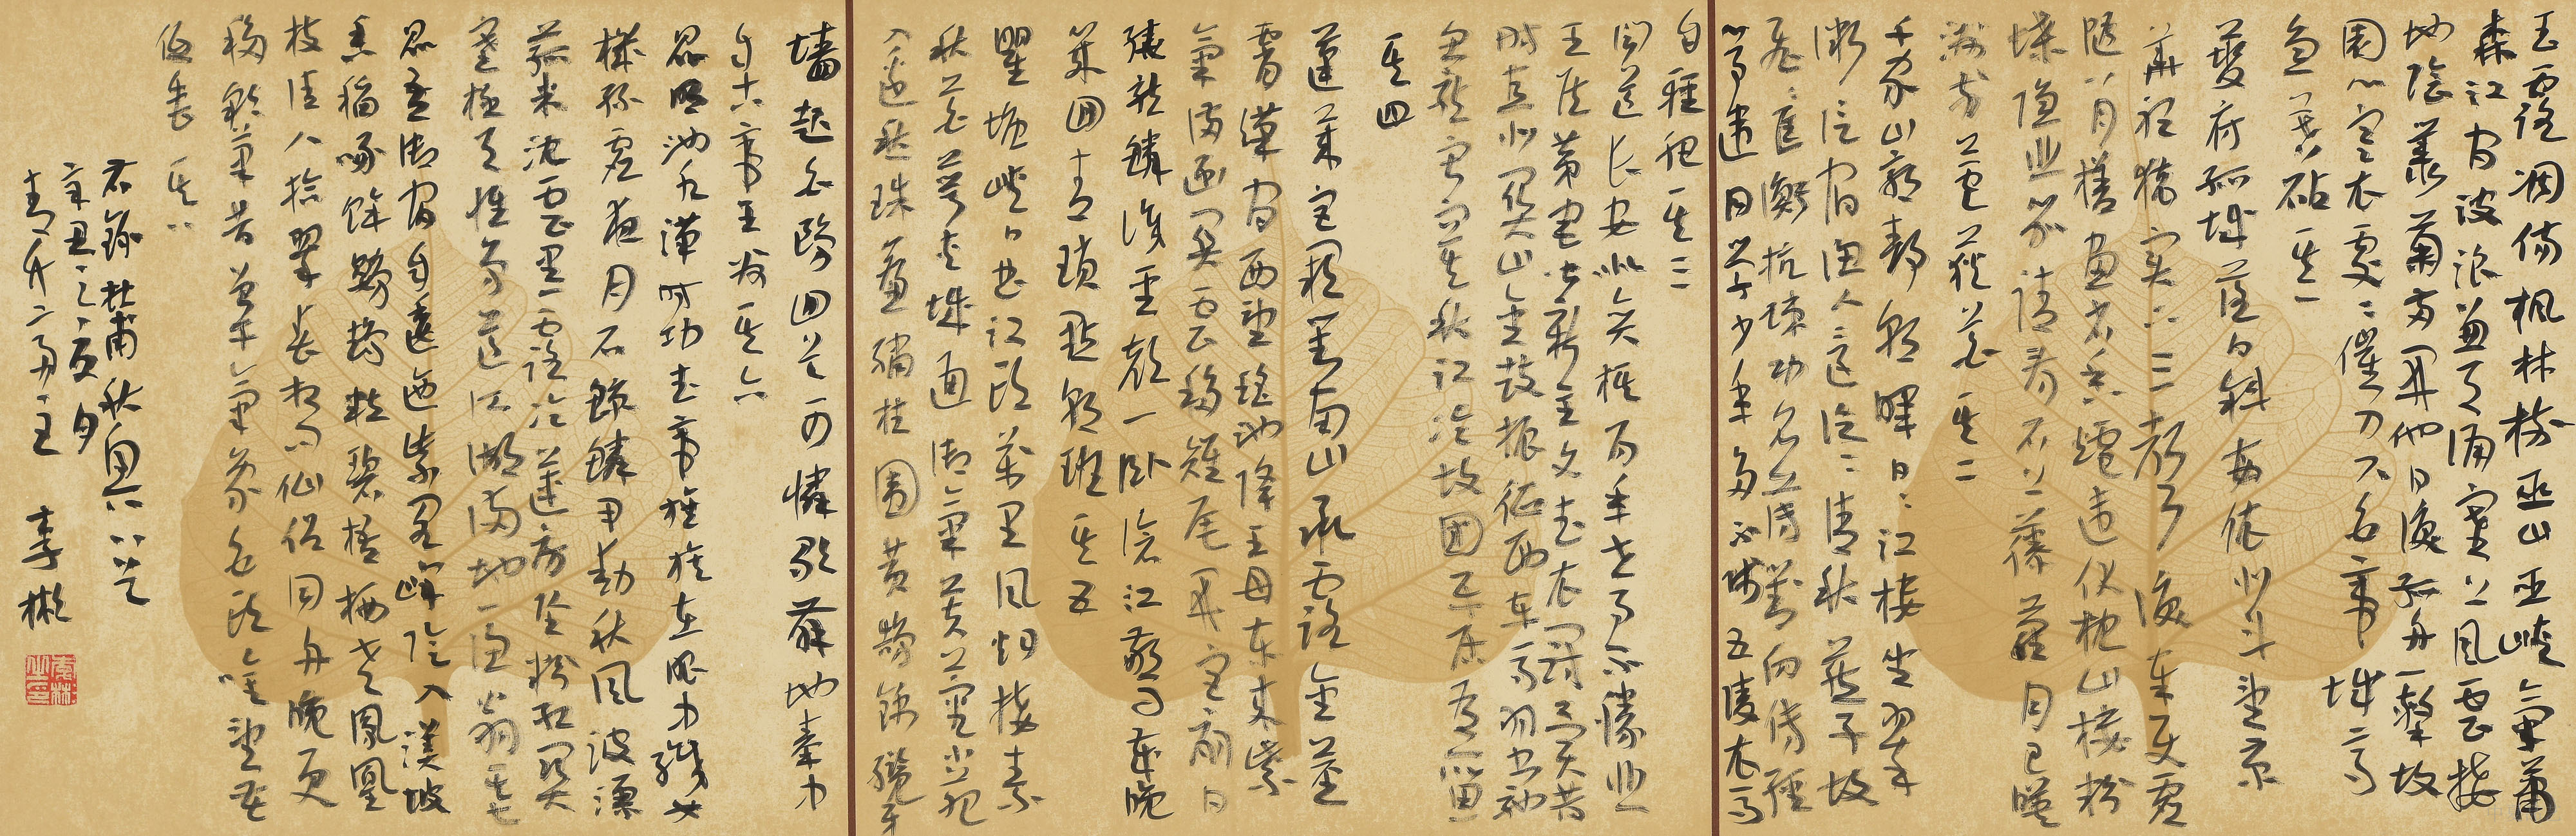 玉露凋伤枫林树巫山巫峡气萧
森江间波浪兼天涌塞上风云接
地阴丛菊两开他日泪孤舟一系故
园心寒衣处处催刀尺白帝城高
急暮砧 其一
夔府孤城落日斜每依北斗望京
华听猿实下三声泪奉使虚
随八月槎画省香炉违伏枕山楼粉
堞隐悲笳请看石上藤萝月已映
洲前芦荻花 其二
千家山郭静朝晖日日江楼坐翠
微信宿渔人还泛泛清秋燕子故
飞飞匡衡抗疏功名薄刘向传经
心事违同学少年多不贱五陵衣马
自轻肥 其三
闻道长安似弈棋百年世事不胜悲
王侯第宅皆新主文武衣冠异昔
时直北关山金鼓振征西车马羽书驰
鱼龙寂寞秋江冷故国平居有所思
其四
蓬莱宫阙对南山承露金茎
霄汉间西望瑶池降王母东来紫
气满函关云移雉尾开宫扇日
绕龙鳞识圣颜一卧沧江惊岁晚
几回青琐点朝班 其五
瞿塘峡口曲江头万里风烟接素
秋花萼夹城通御气芙蓉小苑
入边愁珠帘绣柱围黄鹄锦缆牙
墙起白鸥回首可怜歌舞地秦中
自古帝王州 其六
昆明池水汉时功武帝旌旗在眼中织女
机丝虚夜月石鲸鳞甲动秋风波漂
菰米沉云黑露冷莲房坠粉红关
塞极天惟鸟道江湖满地一渔翁 其七
昆吾御宿自逶迤紫阁峰阴入渼陂
香稻啄余鹦鹉粒碧梧栖老凤凰
枝佳人拾翠春相问仙侣同舟晚更
移彩笔昔曾干气象白头吟望苦
低垂 其八
右錄杜甫秋興八首
辛丑之夏月
主 李彬